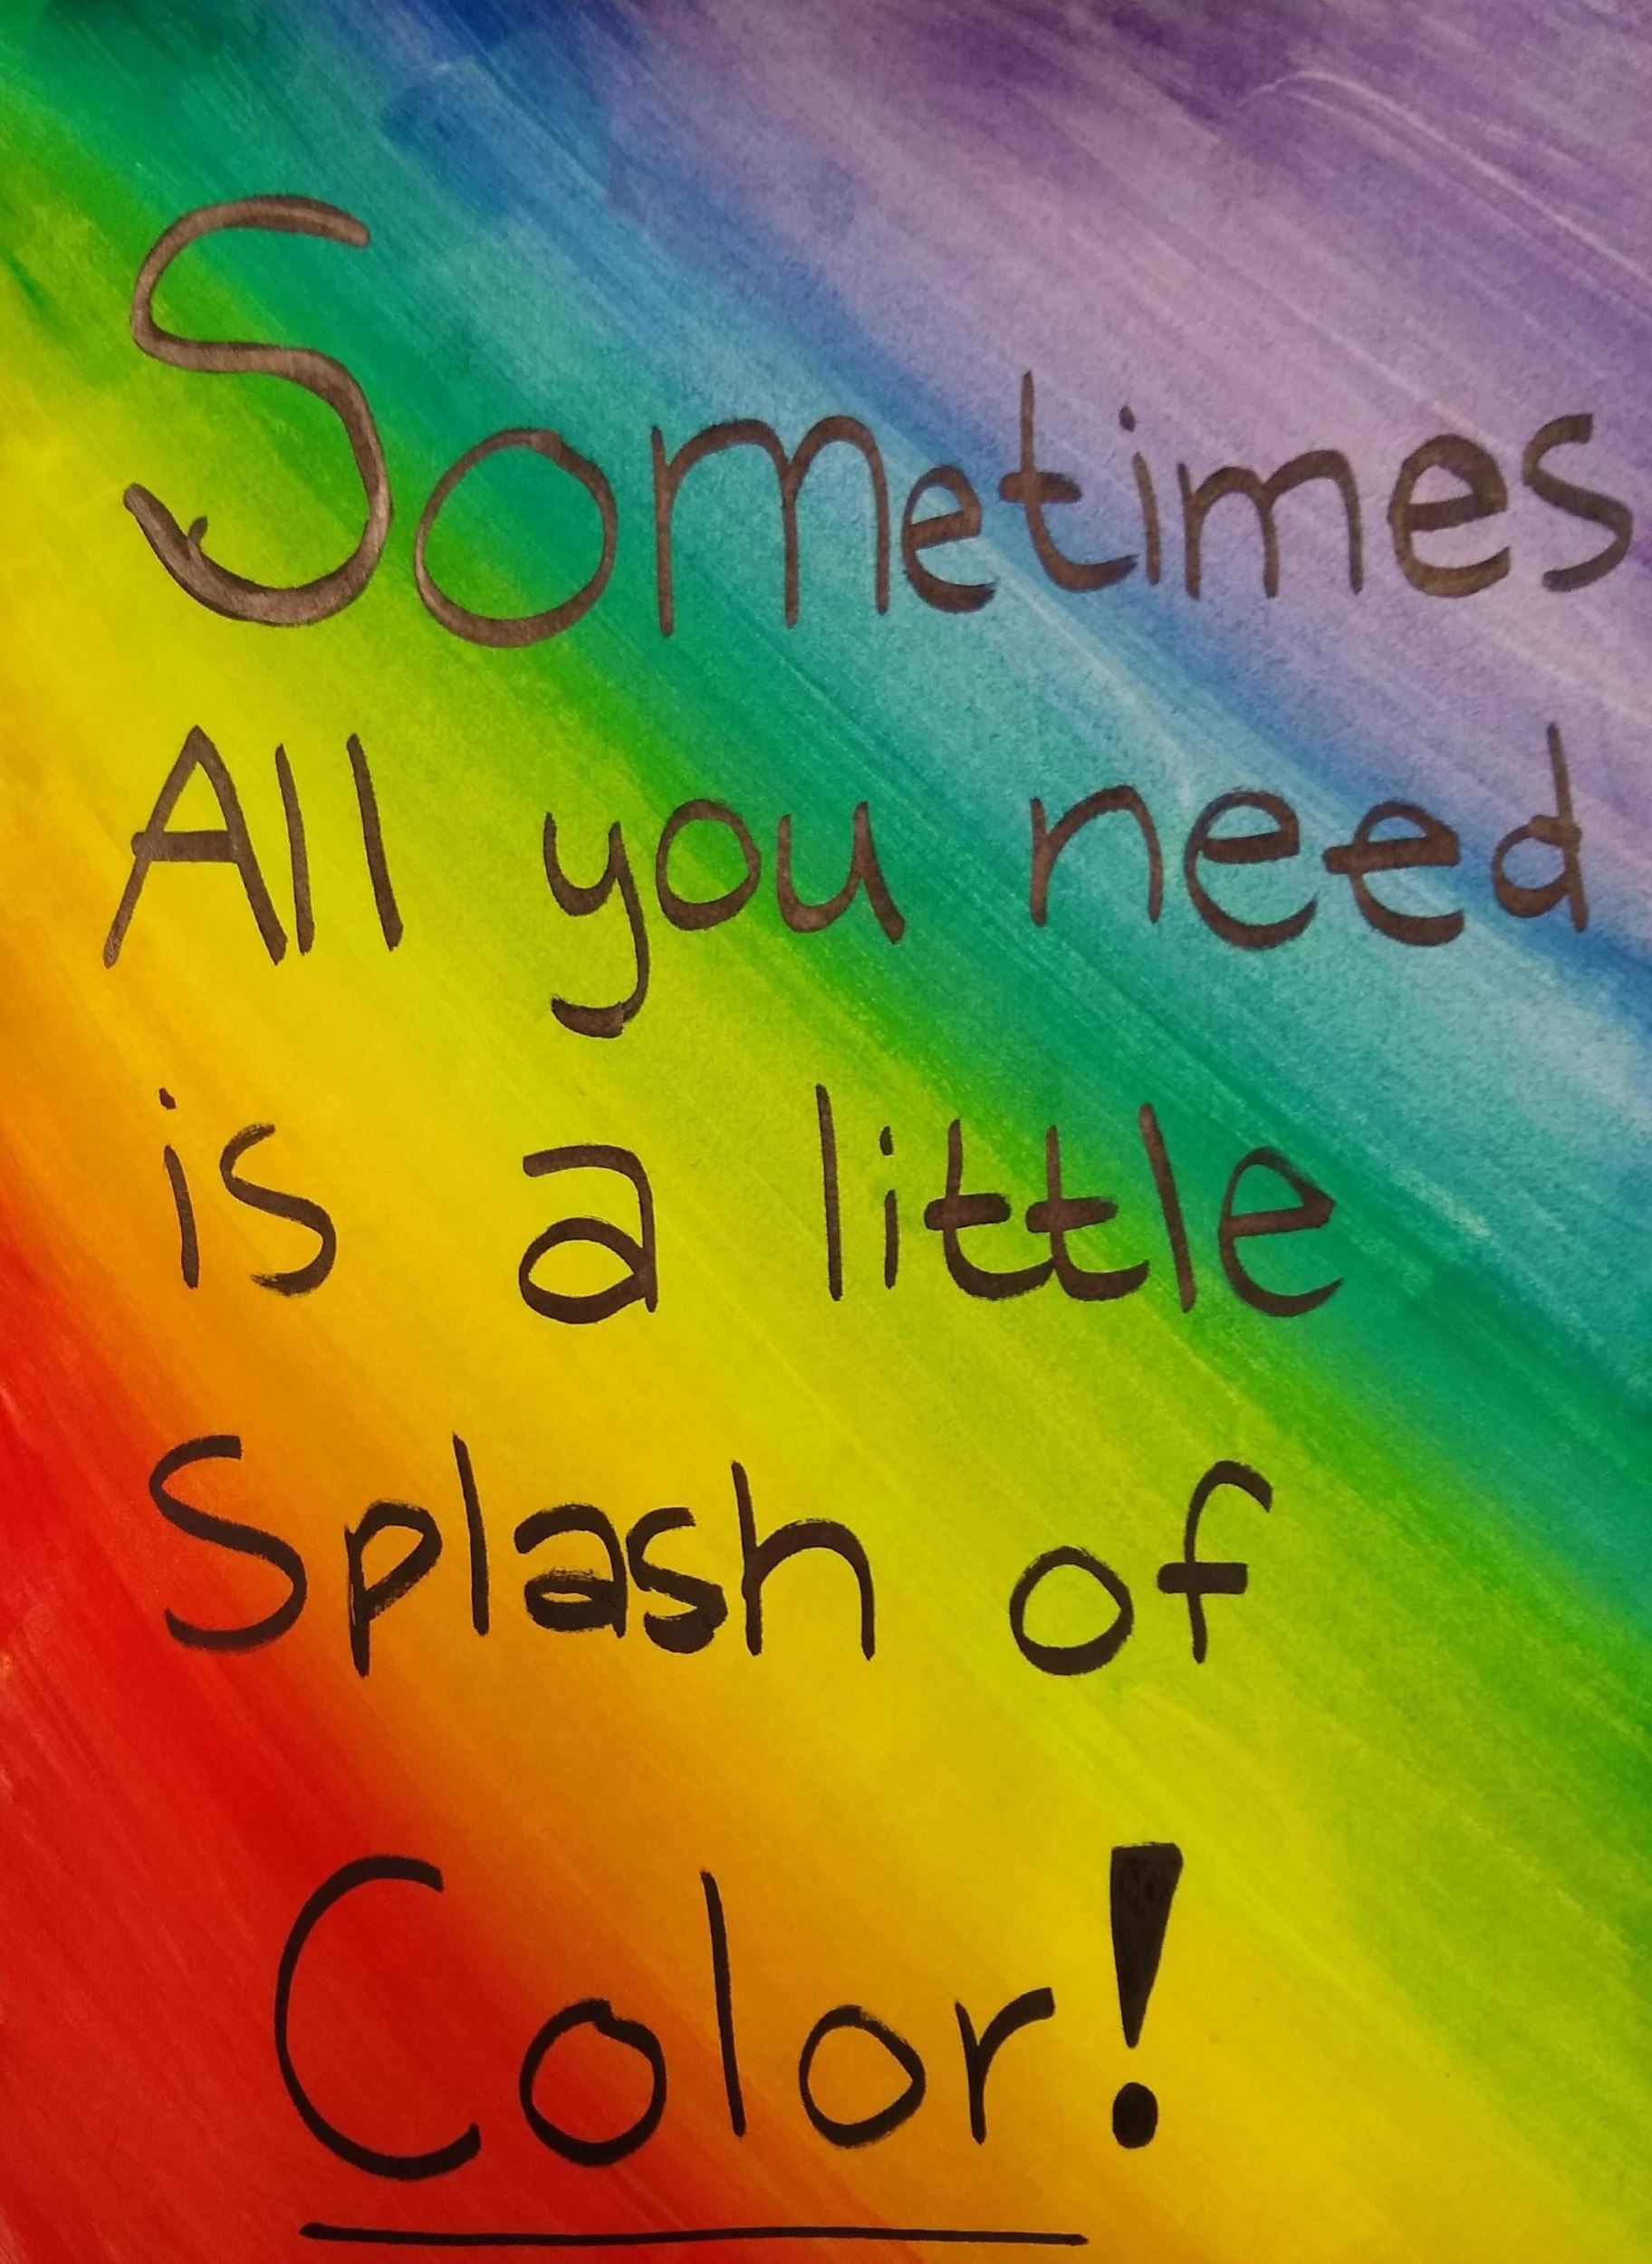 Sometimes
All you need
is a little
Splash of
Color!